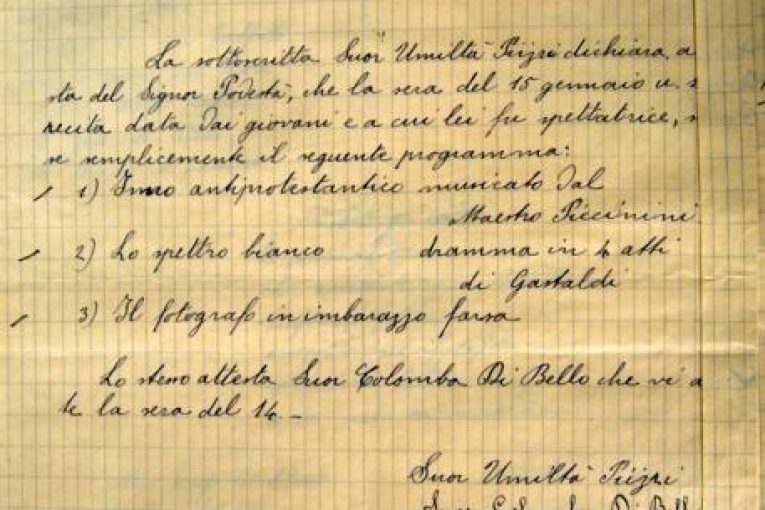 La sottoscritta Suor Umiltà Pizzi dichiara, a
sta del Signor Podestà, che la sera del 15 gennaio u. s
recita data dai giovani e a cui lei fu spettatrice, s
se semplicemente il seguente programma:
1) Inno antiprotestantico musicato dal
Maestro Piccinini
2) Lo spettro bianco dramma in 4 atti
di Gastaldi
3) Il fotografo in imbarazzo farsa
Lo stesso attesta Suor Colomba Di Bello che vi a
te la sera del 14. –
Suor Umiltà Pizzi
Suor Colomba Di Bell